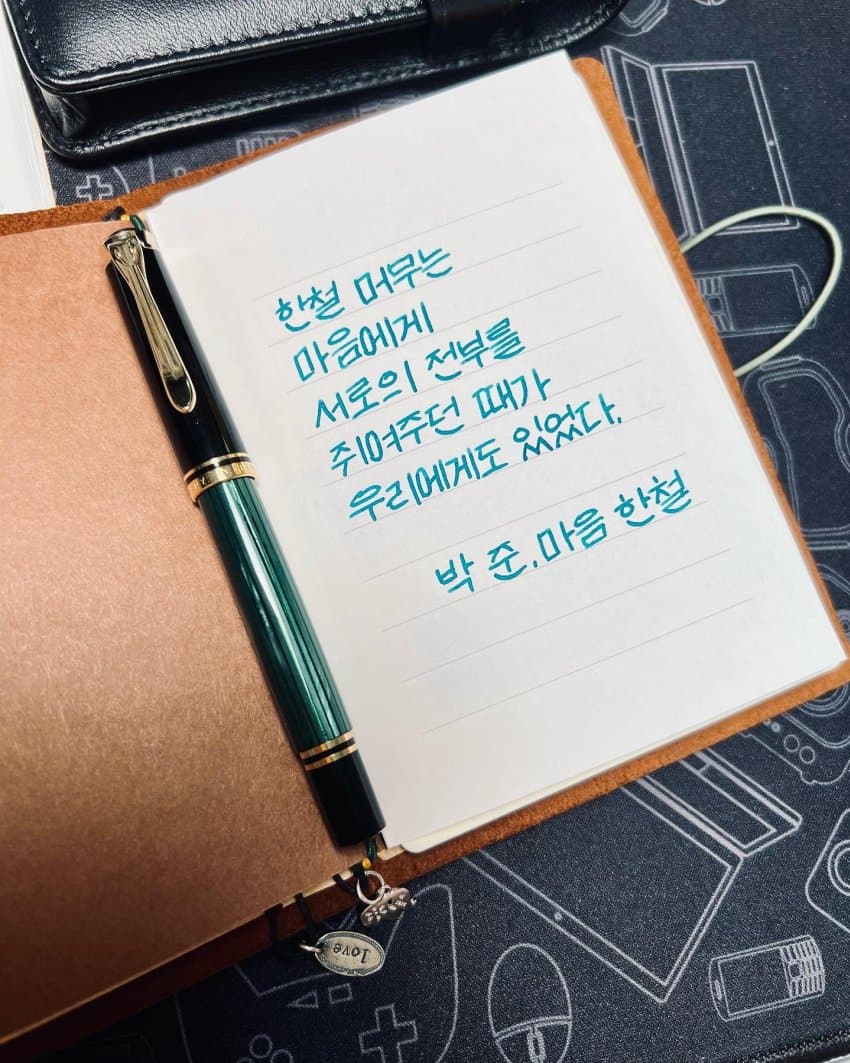 한철 머무는
마음에게
서로의 전부를
쥐여주던 때가
우리에게도 있었다.
박 준, 마음 한철
love